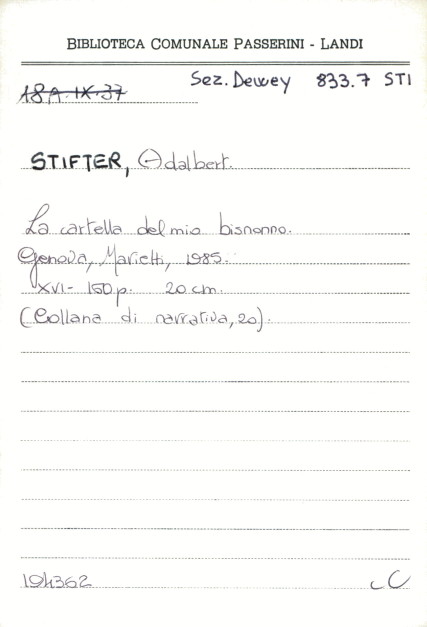 BIBLIOTECA COMUNALE PASSERINI - LANDI
Sez. Dewey 833.7 STI
18A.IX.37
STIFTER, Adalbert.
La cartella del mio bisnonno.
Genova, Marietti, 1985.
XVI- 150 p. 20 cm.
(Collana di narrativa, 20).
194362